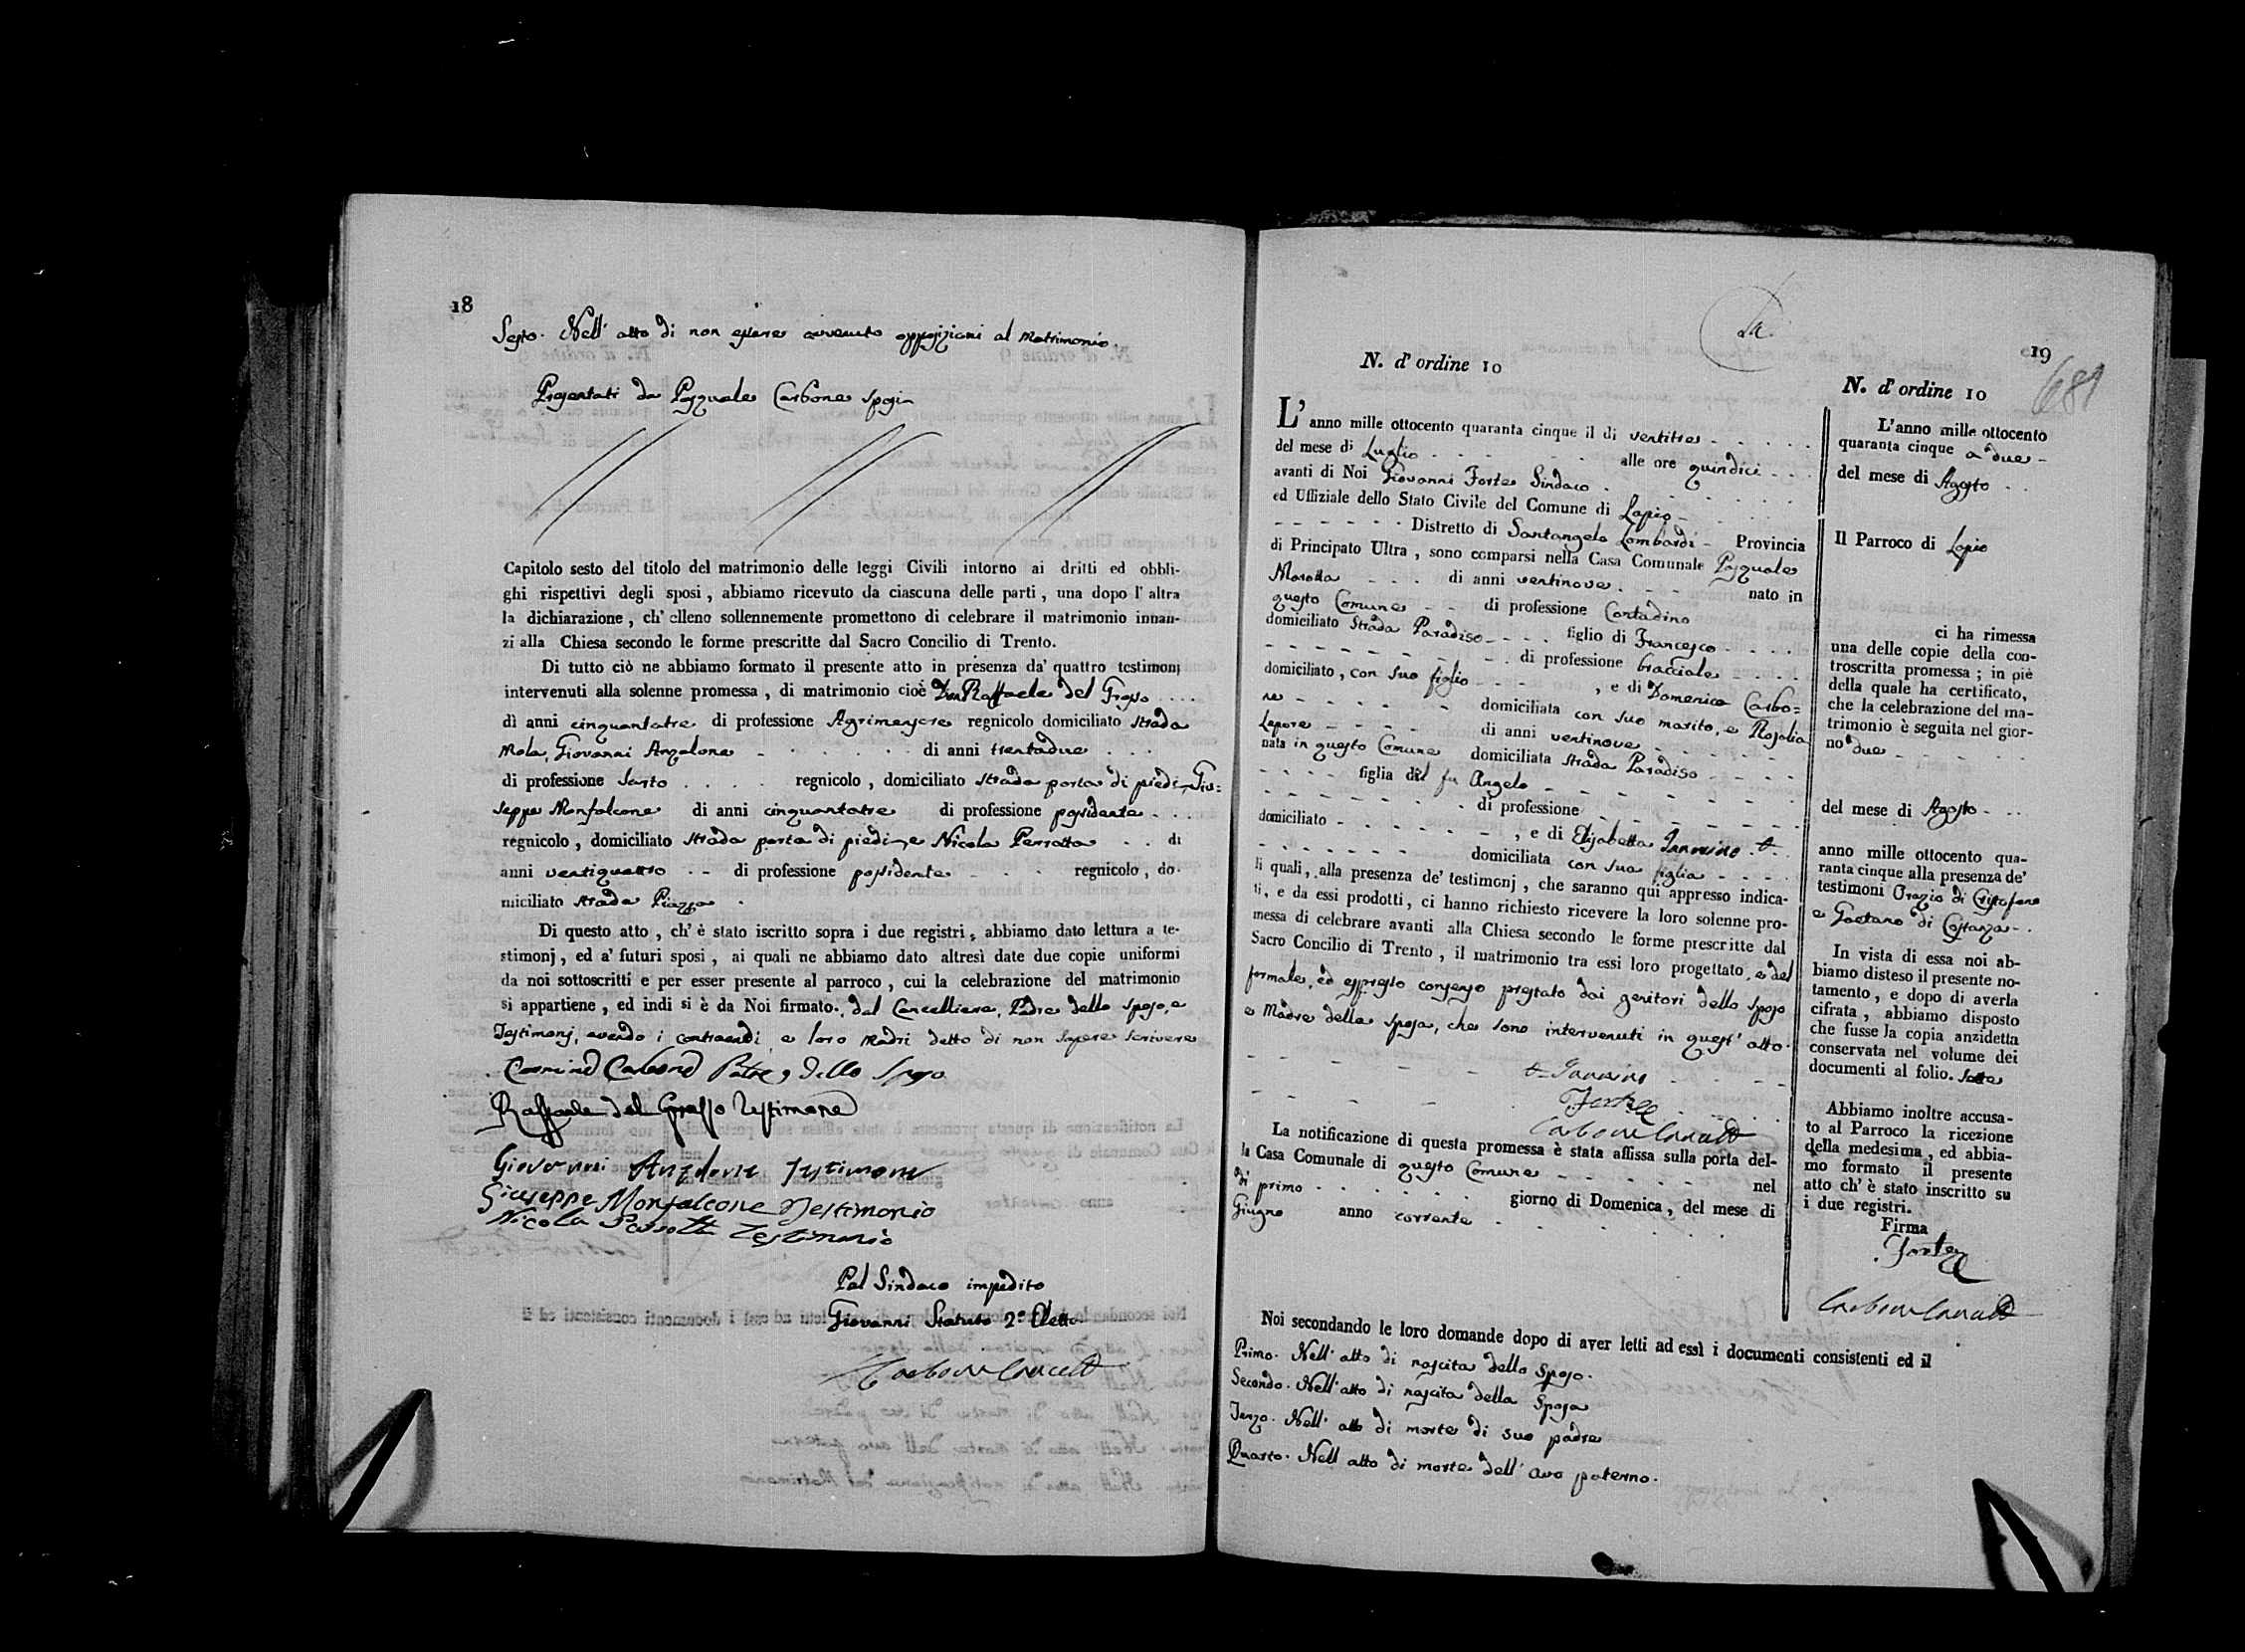 18
Sesto. Nell' atto di non essere avvenuto opposizioni al Matrimonio.
Presentati da Pasquale Carbone sposi
Capitolo sesto del titolo del matrimonio delle leggi Civili intorno ai dritti ed obbli-
ghi rispettivi degli sposi, abbiamo ricevuto da ciascuna delle parti, una dopo l' altra
la dichiarazione, ch' elleno sollennemente promettono di celebrare il matrimonio innan-
zi alla Chiesa secondo le forme prescritte dal Sacro Concilio di Trento.
Di tutto ciò ne abbiamo formato il presente atto in presenza da' quattro testimonj
intervenuti alla solenne promessa, di matrimonio cioè Don Raffaele del Grosso
di anni cinquantatre di professione Agrimensore regnicolo domiciliato strada
Mela, Giovanni Anzalone di anni trentadue
di professione Sarto regnicolo, domiciliato strada porta di piedi, Giu=
seppe Monfalcone di anni cinquantatre di professione possidente
regnicolo, domiciliato strada porta di piedi, e Nicola Perrotta di
anni ventiquattro di professione possidente regnicolo, do-
miciliato strada Piazza
Di questo atto, ch' è stato iscritto sopra i due registri, abbiamo dato lettura a te-
stimonj, ed a' futuri sposi, ai quali ne abbiamo dato altresì date due copie uniformi
da noi sottoscritti e per esser presente al parroco, cui la celebrazione del matrimonio
si appartiene, ed indi si è da Noi firmato. dal Cancelliere, Padre dello sposo, e
Testimonj, avendo i contraendi e loro Madri detto di non sapere scrivere
Carbone Padre dello Sposo
Raffaele del Grosso Testimone
Giovanni Anzalone Testimone
Giuseppe Monfalcone Testimonio
Nicola Perrotta Testimonio
Pel Sindaco impedito
Giovanni Statuto 2º Eletto
Carbone Cancell
19
681
N. d' ordine 10
L' anno mille ottocento quaranta cinque il di ventitre
del mese di Luglio alle ore quindici
avanti di Noi Giovanni Forte Sindaco
ed Uffiziale dello Stato Civile del Comune di Lapio
Distretto di Santangelo Lombardi Provincia
di Principato Ultra, sono comparsi nella Casa Comunale Pasquale
Marotta di anni ventinove nato in
questo Comune di professione Contadino
domiciliato Strada Paradiso figlio di Francesco
di professione bracciale
domiciliato, con suo figlio, e di Domenica Carbo=
ne domiciliata con suo marito, e Rosalia
Lepore di anni ventinove
nata in questo Comune domiciliata strada Paradiso
figlia del fu Angelo
di professione
domiciliato, e di Elisabetta Iannino
domiciliata con sua figlia
li quali, alla presenza de' testimonj, che saranno qui appresso indica-
ti, e da essi prodotti, ci hanno richiesto ricevere la loro solenne pro-
messa di celebrare avanti alla Chiesa secondo le forme prescritte dal
Sacro Concilio di Trento, il matrimonio tra essi loro progettato, e del
formale, ed espresso consenso prestato dai genitori dello sposo
e Madre della sposa, che sono intervenuti in quest' atto.
Iannino
Forte
Carbone Cancell
La notificazione di questa promessa è stata affissa sulla porta del-
la Casa Comunale di questo Comune nel
di primo giorno di Domenica, del mese di
Giugno anno corrente
Noi secondando le loro domande dopo di aver letti ad essi i documenti consistenti ed il
Primo. Nell' atto di nascita dello sposo.
Secondo. Nell' atto di nascita della Sposa
Terzo. Nell' atto di morte di suo padre
Quarto. Nell' atto di morte dell' avo paterno.
N. d' ordine 10
L' anno mille ottocento
quaranta cinque a due
del mese di Agosto
Il Parroco di Lapio
ci ha rimessa
una delle copie della con-
troscritta promessa; in piè
della quale ha certificato,
che la celebrazione del ma-
trimonio è seguita nel gior-
no due
del mese di Agosto
anno mille ottocento qua-
ranta cinque alla presenza de'
testimoni Orazio di Cristofano
e Gaetano di Costanza
In vista di essa noi ab-
biamo disteso il presente no-
tamento, e dopo di averla
cifrata, abbiamo disposto
che fusse la copia anzidetta
conservata nel volume dei
documenti al folio. sette
Abbiamo inoltre accusa-
to al Parroco la ricezione
della medesima, ed abbia-
mo formato il presente
atto ch' è stato inscritto su
i due registri.
Firma
Forte
Carbone Cancell